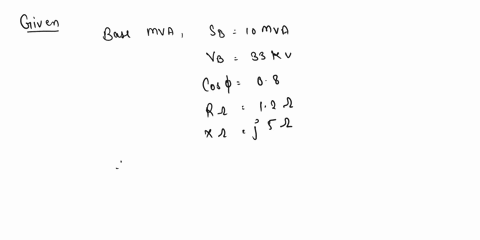 Given
Base MVA, SB = 10 MVA
VB = 33 KV
Cosϕ = 0.8
RΩ = 1.2 Ω
XΩ = j 5 Ω
∴